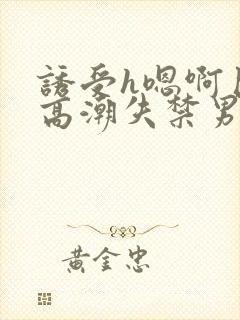 誘受h嗯啊
高潮失禁男
黄金忠